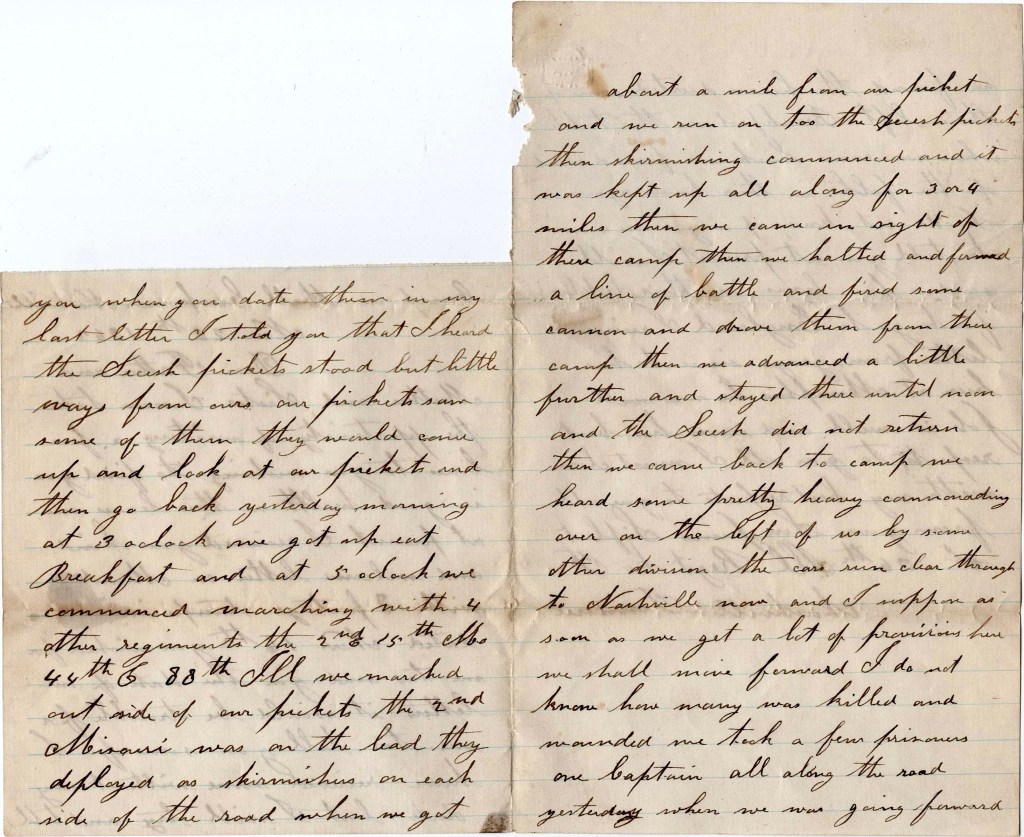 you when you date them in my
last letter I told you that I heard
the Secesh pickets stood but little
ways from ours our pickets saw
some of them they would come
up and look at our pickets and
then go back yesterday morning
at 3 oclock we got up eat
Breakfast and at 5 oclock we
commenced marching with 4
other regiments the 2nd & 15th Mo
44th & 88th Ill we marched
out side of our pickets the 2nd
Missouri was on the lead they
deployed as skirmishers on each
side of the road when we got
about a mile from our picket
and we run on too the Secesh pickets
then skirmishing commenced and it
was kept up all along for 3 or 4
miles then we came in sight of
there camp then we halted and formed
a line of battle and fired some
cannon and drove them from there
camp then we advanced a little
further and stayed there until noon
and the Secesh did not return
then we came back to camp we
heard some pretty heavy cannonading
over on the left of us by some
other division the cars run clear through
to Nashville now and I suppose as
soon as we get a lot of provisions here
we shall move forward I do not
know how many was killed and
wounded we took a few prisoners
one Captain all along the road
yesterday when we was going forward